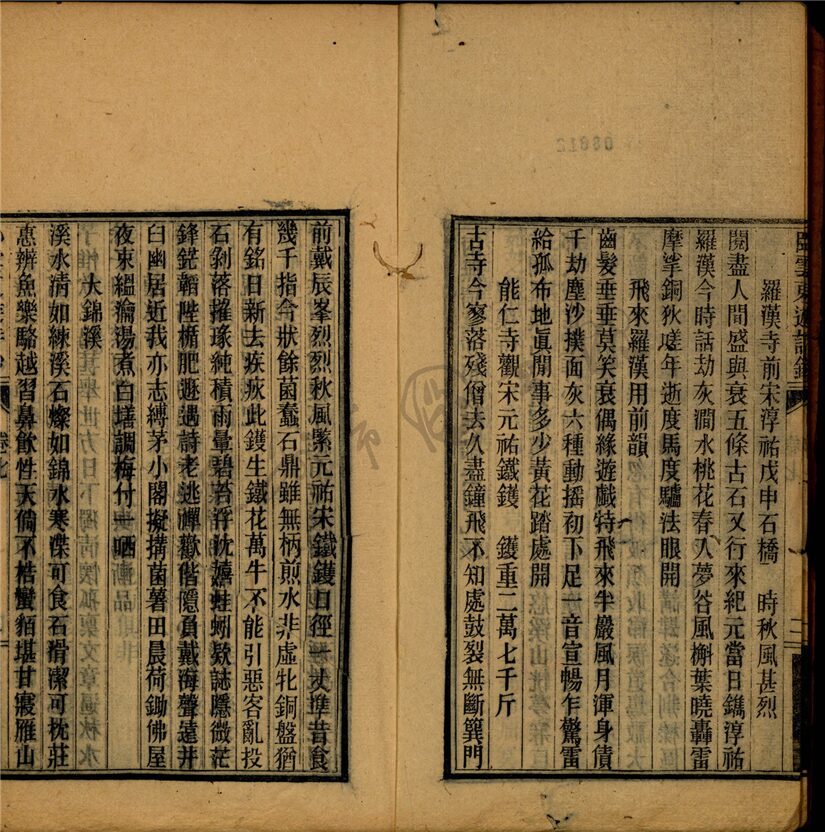 羅漢寺前宋淳祐戊申石橋　時秋風甚烈
閱盡人間盛與衰五條古石又行來紀元當日鐫淳祐
羅漢今時話劫灰澗水桃花春入夢谷風槲葉曉轟雷
摩挲銅狄嗟年逝度馬度驢法眼開
飛來羅漢用前韻
齒髮垂垂莫笑衰偶緣遊戲特飛來半巖風月渾身債
千劫塵沙撲面灰六種動搖初下足一音宣暢乍驚雷
給孤布地眞閒事多少黃花踏處開
能仁寺觀宋元祐鐵鑊　鑊重二萬七千斤
古寺今寥落殘僧去久盡鐘飛不知處鼓裂無斷簨門
前戴辰峯烈烈秋風緊元祐宋鐵鑊口徑一丈準昔食
幾千指今狀餘菌蠢石鼎雖無柄煎水非虛牝銅盤猶
有銘日新去疾疢此鑊生鐵花萬牛不能引惡客亂投
石剝落摧瑑純積雨暈碧苔浮沈嬉蛙蚓欵誌隱微茫
鋒銳韜陛楯肥遯遇詩老逃禪歡偕隱員戴海聲遠井
臼幽居近我亦志縛茅小閣擬搆菌薯田晨荷鋤佛屋
夜束縕瀹湯煮白𥻦調梅付一哂
大錦溪
溪水清如練溪石燦如錦水寒渫可食石滑潔可枕莊
惠辨魚樂駱越習鼻飲性天倘不梏蠻貊堪甘寢雁山
卷七